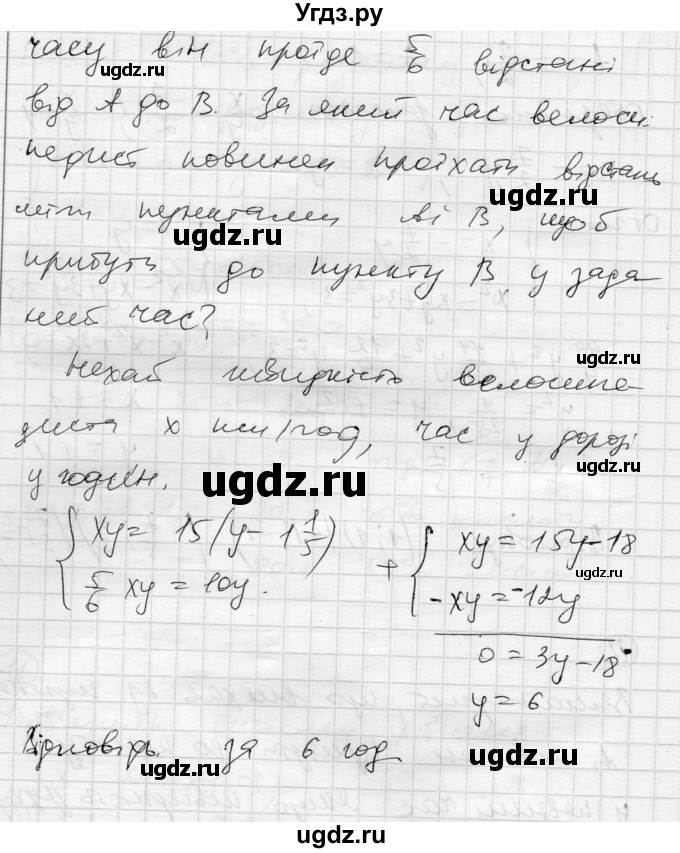 Угдз.ру
часу він проїде 5/6 відстані
ugdz.ru ugdz.ru
від А до В. За який час велоси-
педист повинен проїхати відстань
ugdz.ru
між пунктами А і В, щоб
ugdz.ru
прибути до пункту В у зада-
ний час?
ugdz.ru
Нехай швидкість велосипе-
диста х км/год, час у дорозі
ugdz.ru
у годин.
ugdz.ru
xy = 15(y - 1 1/5) + xy = 15y - 18
ugdz.ru
5/6 xy = 10y. -xy = -12y
0 = 3y - 18
ugdz.ru
y = 6
Відповідь за 6 год
ugdz.ru ugdz.ru
ugdz.ru